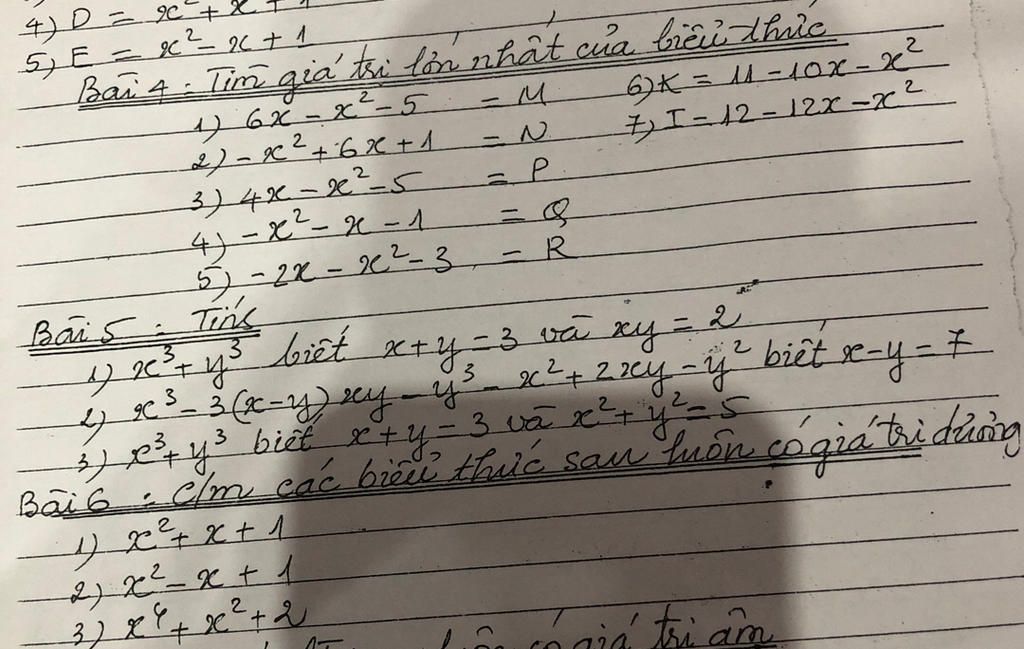 4) D = x² + x + 1
5) E = x² - x + 1
Bài 4 : Tìm giá trị lớn nhất của biểu thức
1) 6x - x² - 5 = M 6) K = 11 - 10x - x²
2) - x² + 6x + 1 = N 7) I = 12 - 12x - x²
3) 4x - x² - 5 = P
4) - x² - x - 1 = Q
5) - 2x - x² - 3 = R
Bài 5 : Tính
1) x³ + y³ biết x + y = 3 và xy = 2
2) x³ - 3(x - y)xy - y³ - x² + 2xy - y² biết x - y = 7
3) x³ + y³ biết x + y = 3 và x² + y² = 5
Bài 6 : C/m các biểu thức sau luôn có giá trị dương
1) x² + x + 1
2) x² - x + 1
3) x⁴ + x² + 2
có giá trị âm